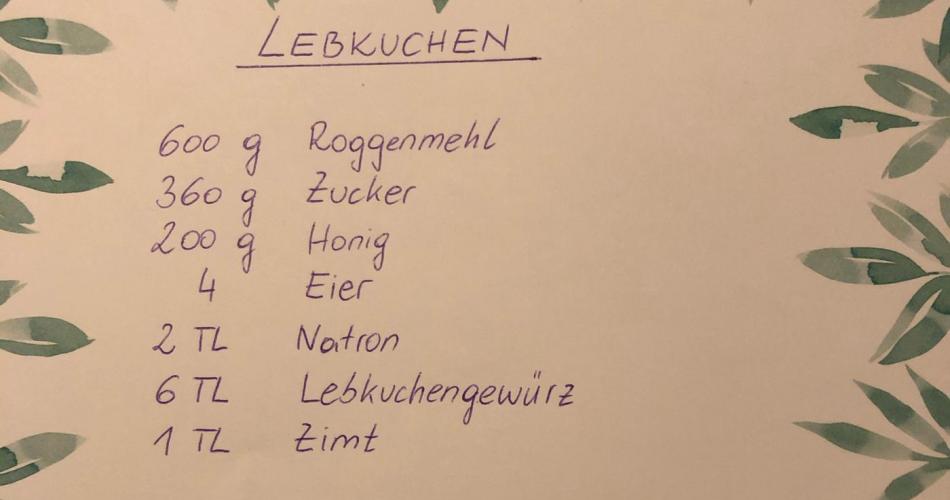 LEBKUCHEN
600 g Roggenmehl
360 g Zucker
200 g Honig
4 Eier
2 TL Natron
6 TL Lebkuchengewürz
1 TL Zimt